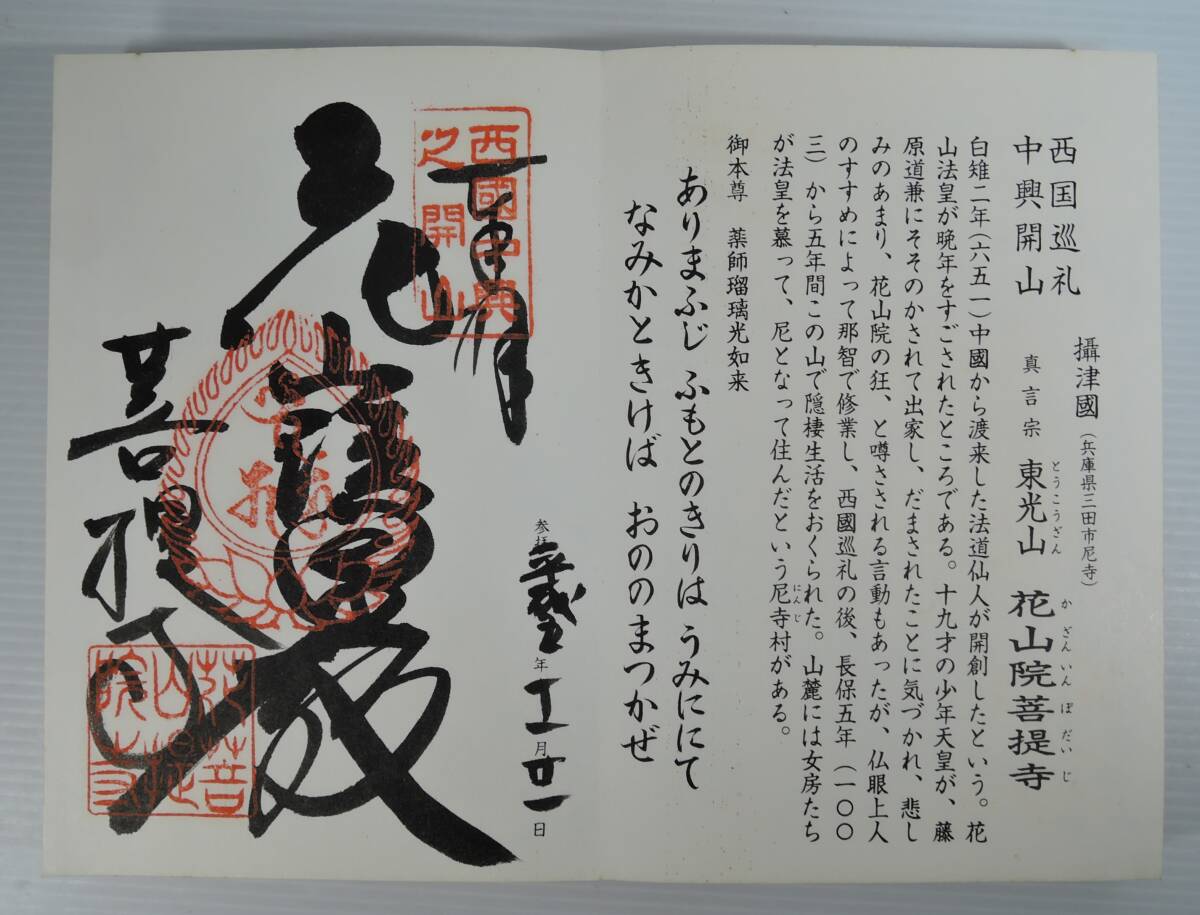 西国巡礼
中興開山
攝津國(兵庫県三田市尼寺)
真言宗 東光山 花山院菩提寺
とうこうざん
かざんいんぼだいじ
白雉二年(六五一)中國から渡来した法道仙人が開創したという。花
山法皇が晩年をすごされたところである。十九才の少年天皇が、藤
原道兼にそそのかされて出家し、だまされたことに気づかれ、悲し
みのあまり、花山院の狂、と噂さされる言動もあったが、仏眼上人
のすすめによって那智で修業し、西國巡礼の後、長保五年(一〇〇
三)から五年間この山で隠棲生活をおくられた。山麓には女房たち
が法皇を慕って、尼となって住んだという尼寺村がある。
にんじ
御本尊 薬師瑠璃光如来
ありまふじ ふもとのきりは うみににて
なみかときけば おののまつかぜ
西國中興
之開山
花山法皇
菩提寺
花山院菩提寺
参拝 年 月廿一日